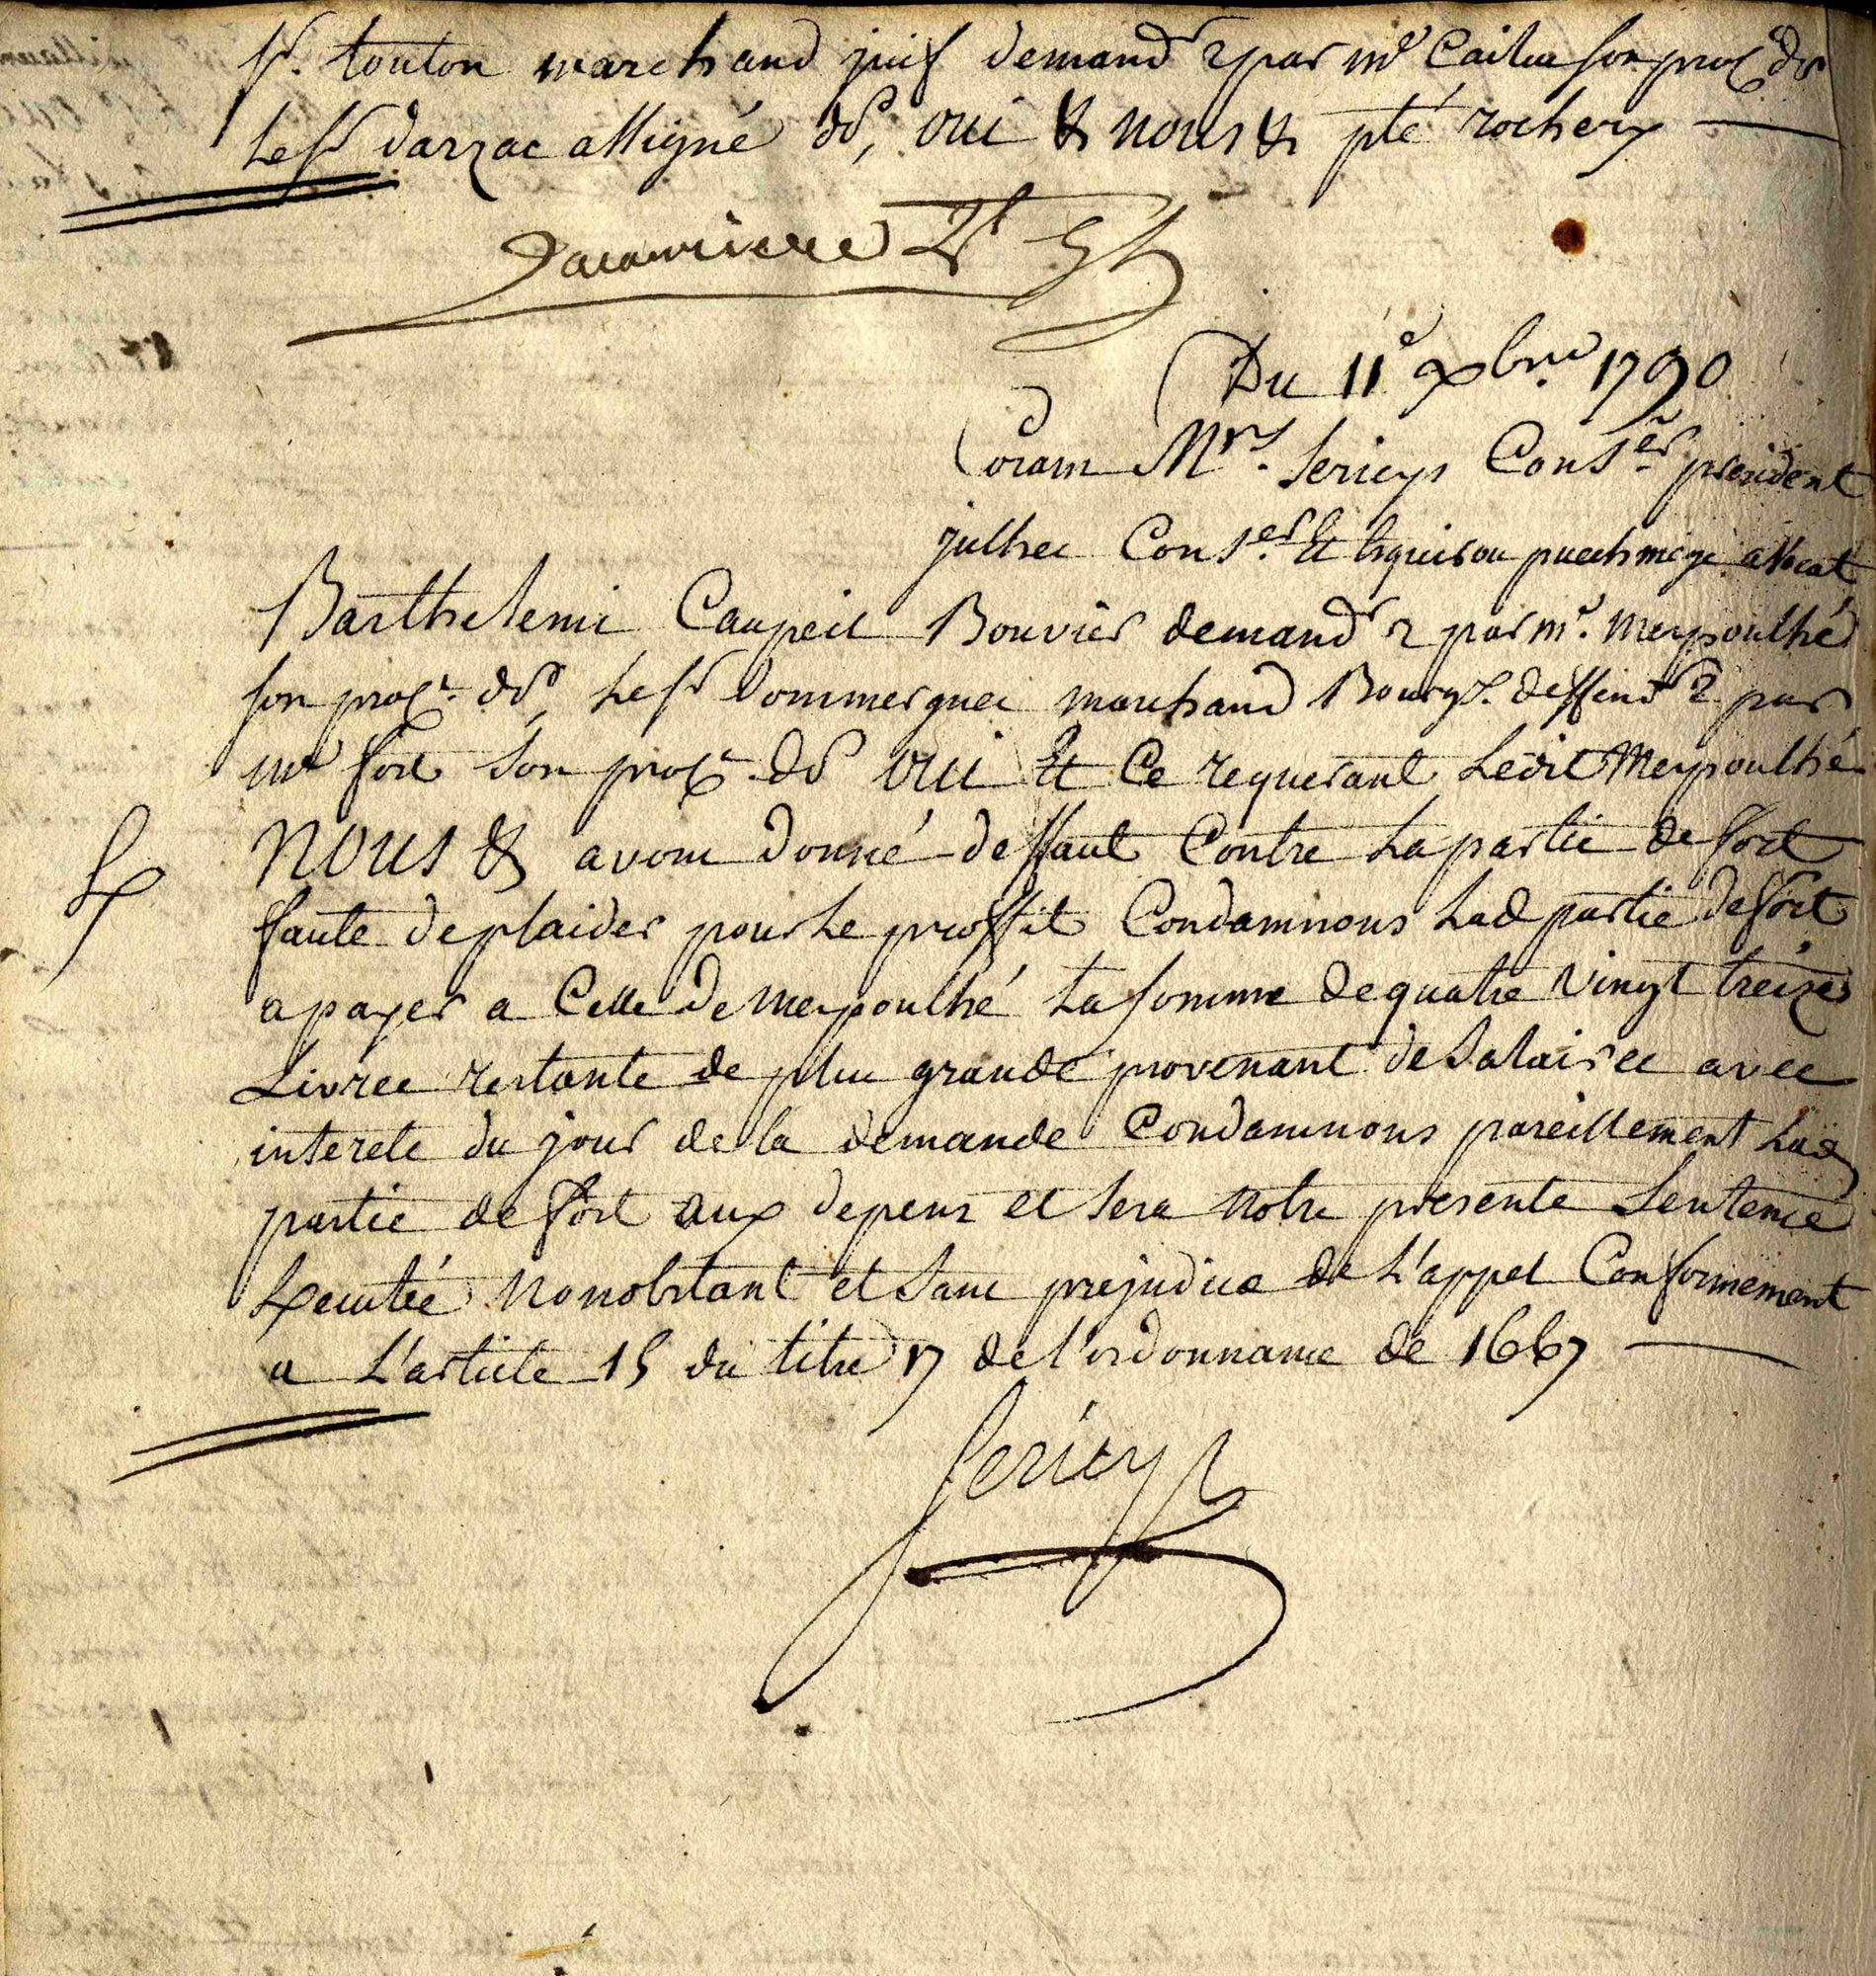 Sr. touton marchand juif demandr par me Cailus son procr dp
Le sr darzac assigné dp, oui & nous & pté rochery
Du 11e xbre 1790
Coram Mrs. Sericys Conser president
julhec Conser Et puechmege avocat
Barthelemi Caupeil Bouvier demandr par me. Meypoulhé
son procr. dp, Le sr Dommergues marchand Bourgs. deffendr par
me fort son procr dp oui Et Ce requerant Ledit Meypoulhé
NOUS & avons donné deffaut Contre La partie de fort
faute de plaider pour Le proffit Condamnons Lad partie de fort
a payer a Celle de Meypoulhé La somme de quatre vingt treize
Livres restante de plus grande provenant de Salaires avec
interets du jour de la demande Condamnons pareillement Lad
partie de fort aux depens et sera notre presente Sentence
Executée Nonobstant et Sans prejudice de L'appel Conformement
a L'article 15 du titre 17 de l'ordonnance de 1667
Sericys